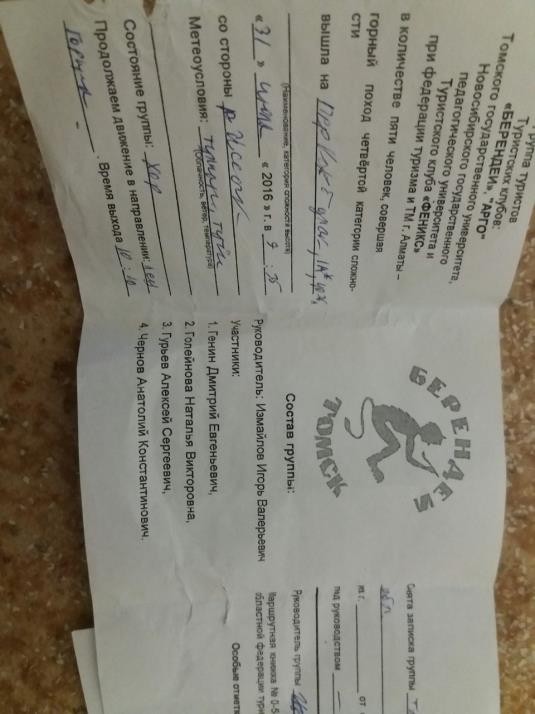 Группа туристов
Туристских клубов:
«БЕРЕНДЕИ», "АРГО"
Томского государственного
Новосибирского государственного
педагогического университета,
Туристского клуба «ФЕНИКС»
при федерации туризма и ТМ г. Алматы –
в количестве пяти человек, совершая
горный поход четвёртой категории сложно-
сти
вышла на
(Наименование, категория сложности, высота)
« 31 » « 2016 » г. в 9 : 35
со стороны р.
Метеоусловия: туман,
(Облачность, ветер, температура)
Состояние группы: хор
Продолжаем движение в направлении: лед
. Время выхода 10 : 10
БЕРЕНДЕЙ
ТОМСК
Состав группы:
Руководитель: Измайлов Игорь Валерьевич
Участники:
1. Генин Дмитрий Евгеньевич,
2. Голейнова Наталья Викторовна,
3. Гурьев Алексей Сергеевич,
4. Чернов Анатолий Константинович.
Снята записка группы
из г. от
под руководством
Руководитель группы
Маршрутная книжка № 0-5
областной федерации тури
Особые отметк